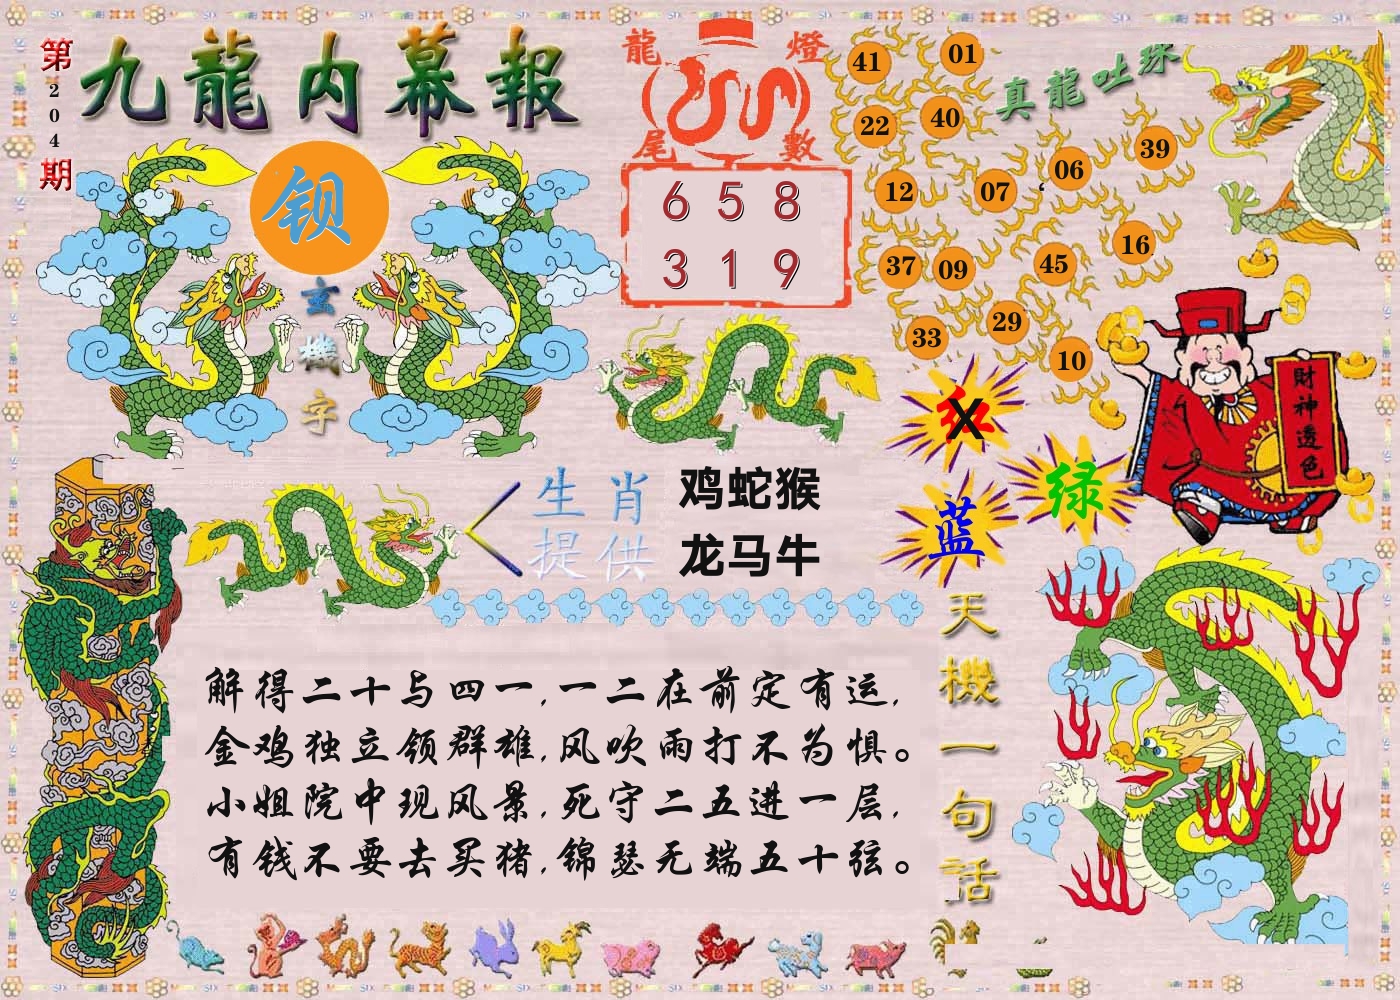 第204期
九龍内幕報
钡
玄機字
龍燈
尾數
6 5 8
3 1 9
真龍吐珠
41
01
22
40
39
06
12
07
16
37
09
45
29
33
10
红
X
绿
蓝
財神透色
生肖
提供
鸡蛇猴
龙马牛
天機一句話
解得二十与四一,一二在前定有运,
金鸡独立领群雄,风吹雨打不为惧。
小姐院中现风景,死守二五进一层,
有钱不要去买猪,锦瑟无端五十弦。